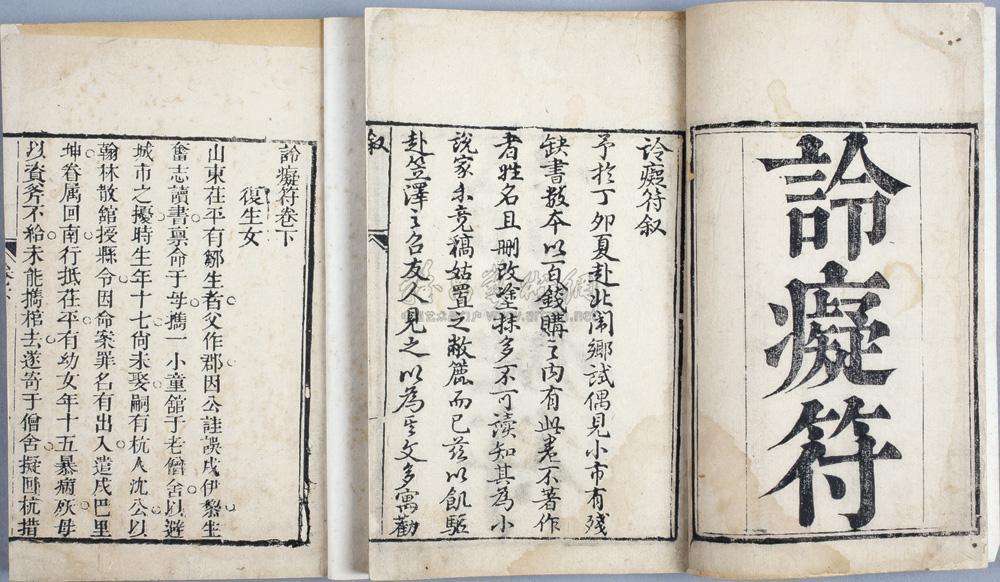 詅癡符
詅癡符叙
予於丁卯夏赴北闈鄉試偶見小市有殘
缺書数本以百錢購之内有此卷不著作
者姓名且刪改塗抹多不可讀知其為小
說家未竟稿姑置之敝簏而已茲以飢驅
赴笠澤之召友人見之以為其文多寓勸
叙
詅癡符卷下
復生女
山東茌平有鄒生者父作郡因公詿誤戍伊黎生
奮志讀書禀命于母攜一小童舘于老僧舍以避
城市之擾時生年十七尚未娶嗣有杭人沈公以
翰林散舘授縣令因命案罪名有出入遣戍巴里
坤眷属回南行抵茌平有幼女年十五暴病殀母
以資斧不給未能攜棺去遂寄于僧舍擬囘杭措